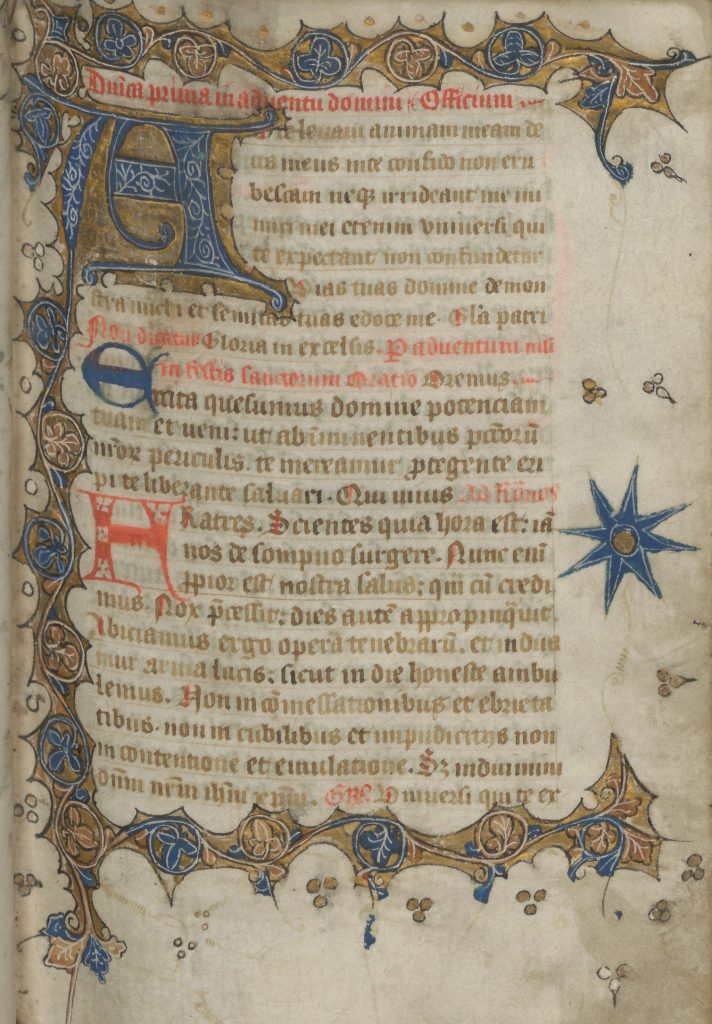 Dnica prima in aduentu domini Officium
Ad te leuaui animam meam de
us meus in te confido non eru
bescam neq; irrideant me ini
mici mei etenim vniuersi qui
te expectant non confundentur
Vias tuas domine demon
stra michi et semitas tuas edoce me. Gla patri
Non dicitur Gloria in excelsis. P aduentum nisi
in festis sanctorum Oratio Oremus.
Excita quesumus domine potenciam
tuam et veni: ut ab iminentibus pctorũ
nror periculis. te mereamur ptegente eri
pi te liberante saluari. Qui uiuis Ad Romos
Fratres. Scientes quia hora est: iã
nos de sompno surgere. Nunc eni
ppior est nostra salus: qm cũ credi
mus. Nox pcessit: dies autẽ appropinqͥuit
Abiciamus ergo opera tenebrarũ. et indua
mur arma lucis: sicut in die honeste ambu
lemus. Non in cõmessationibus et ebrieta
tibus. non in cubilibus et impudicitijs non
in contentione et emulatione. Sz induimini
dnm nrm ihm xpm. GR̃. Vniuersi qui te ex